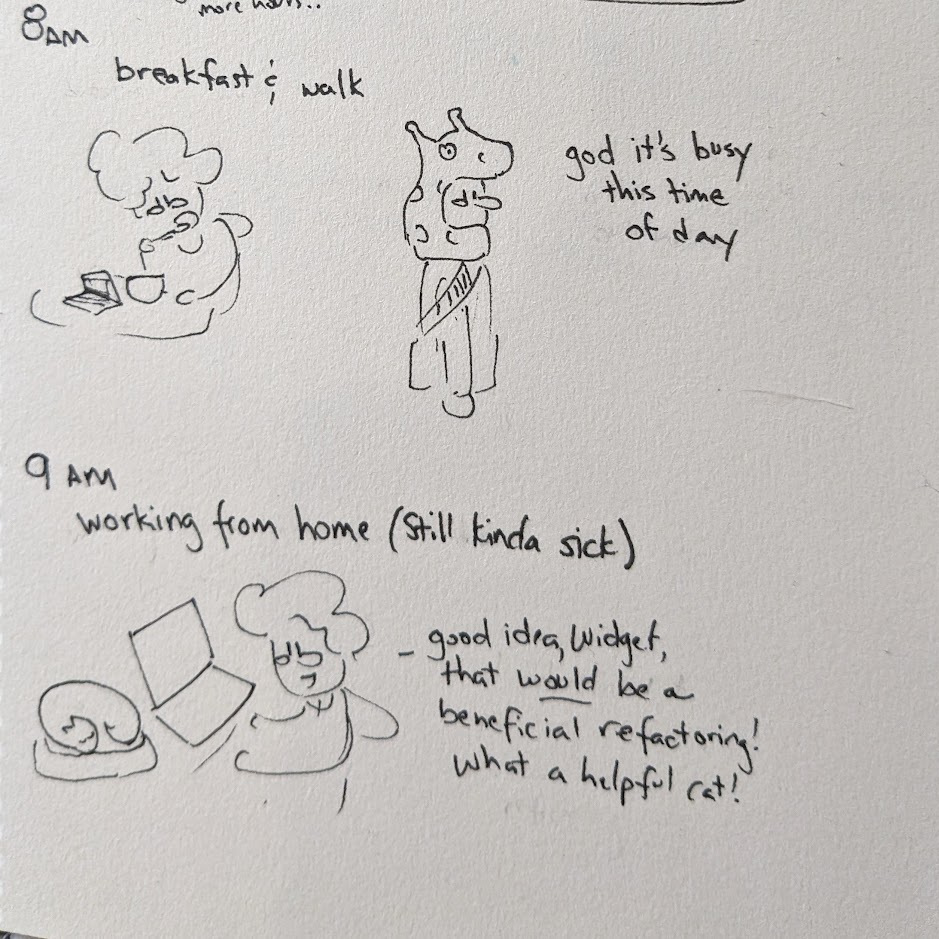 more hours..
8AM
breakfast & walk
god it's busy
this time
of day
9 AM
working from home (still kinda sick)
- good idea, Widget,
that would be a
beneficial refactoring!
What a helpful cat!